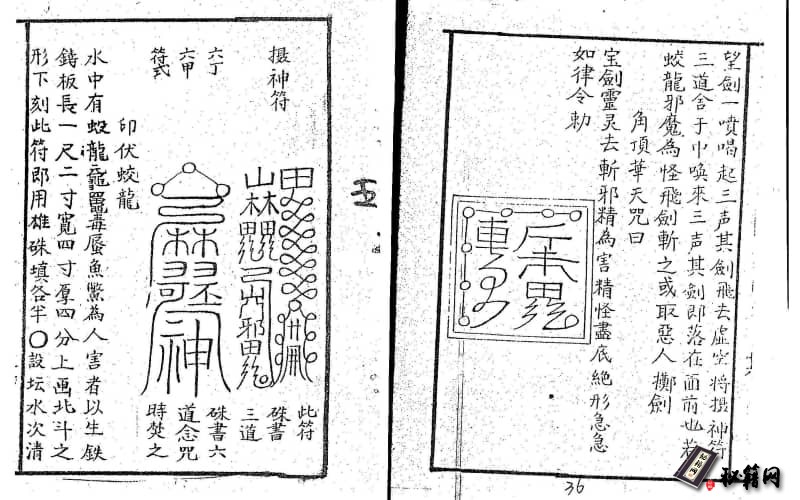 望劍一噴唱起三声其劍飛去虛空将摄神符
三道含于中喚來三声其劍即落在面前也若
蛟龍邪魔為怪飛劍斬之或取惡人擲劍
角頂華天咒曰
宝劍靈灵去斬邪精為害精怪盡底絶形急急
如律令勅
36
摄神符
此符
硃書
三道
六丁
六甲
符式
硃書六
道念咒
時焚之
印伏蛟龍
水中有蛟龍黿鼉毒蜃魚鱉為人害者以生鉄
鋳板長一尺二寸寬四寸厚四分上画北斗之
形下刻此符即用雄硃填各半〇設坛水次清
秘籍网